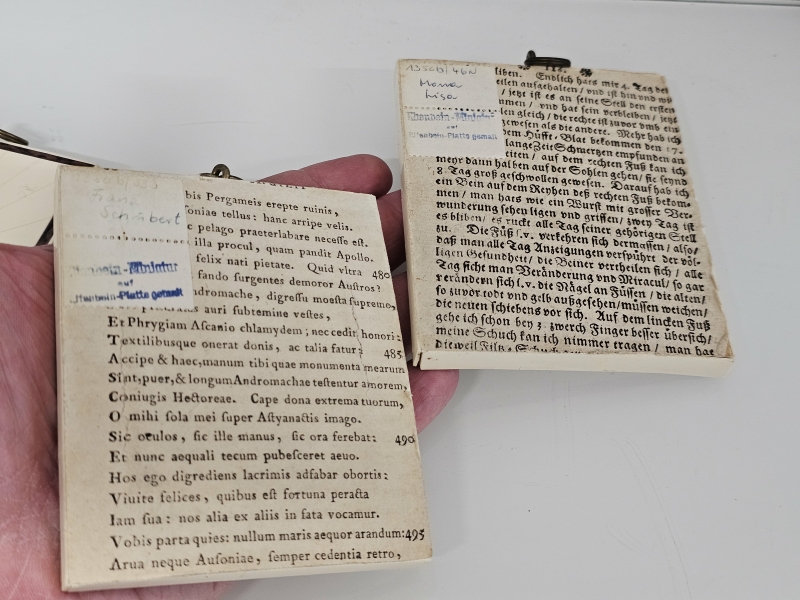 Franz
Schubert
Elfenbein-Miniatur
auf
Elfenbein-Platte gemalt
bis Pergameis erepte ruinis,
ſoniae tellus: hanc arripe velis.
c pelago praeterlabare neceſſe eſt.
illa procul, quam pandit Apollo.
felix nati pietate. Quid vltra 480
fando ſurgentes demoror Auſtros?
ndromache, digreſſu moeſta ſupremo,
auri ſubtemine veſtes,
Et Phrygiam Aſcanio chlamydem; nec cedit honori:
Textilibusque onerat donis, ac talia fatur: 485
Accipe & haec, manuum tibi quae monumenta mearum
Sint, puer, & longum Andromachae teſtentur amorem,
Coniugis Hectoreae. Cape dona extrema tuorum,
O mihi ſola mei ſuper Aſtyanactis imago.
Sic oculos, ſic ille manus, ſic ora ferebat: 490
Et nunc aequali tecum pubeſceret aeuo.
Hos ego digrediens lacrimis adfabar obortis:
Viuite felices, quibus eſt fortuna peracta
Iam ſua: nos alia ex aliis in fata vocamur.
Vobis parta quies: nullum maris aequor arandum: 495
Arua neque Auſoniae, ſemper cedentia retro,
Mona
Lisa
Elfenbein-Miniatur
auf
Elfenbein-Platte gemalt
liben. Endlich hats mir 4. Tag bei
eilen aufgehalten / und iſt hin und wi
/ jetzt iſt es an ſeine Stell den erſten
men / und hat ſein verbleiben / jetzt
len gleich / die rechte iſt zuvor umb ein
geweſen als die andere. Mehr hab ich
dem Hüfft-Blat bekommen den 17.
lange Zeit Schmertzen empfunden an
eiten / auf dem rechten Fuß kan ich
mehr dann halben auf der Sohlen gehen / ſie ſeynd
8. Tag groß geſchwollen geweſen. Darauf hab ich
ein Bein auf dem Reyhen deß rechten Fuß bekom-
men / man hats wie ein Wurſt mit groſſer Ver-
wunderung ſehen ligen und griffen / zwey Tag iſt
es bliben / es ruckt alle Tag ſeiner gehörigen Stell
zu. Die Füß ſ.v. verkehren ſich dermaſſen / alſo /
daß man alle Tag Anzeigungen verſpührt der völ-
ligen Geſundheit / die Beiner vertheilen ſich / alle
Tag ſicht man Veränderung und Miracul / ſo gar
verändern ſich ſ.v. die Nägel an Füſſen / die alten /
ſo zuvor todt und gelb außgeſehen / müſſen weichen /
die neuen ſchiebens vor ſich. Auf dem lincken Fuß
gehe ich ſchon bey 3. zwerch Finger beſſer überſich /
meine Schuch kan ich nimmer tragen / man hat